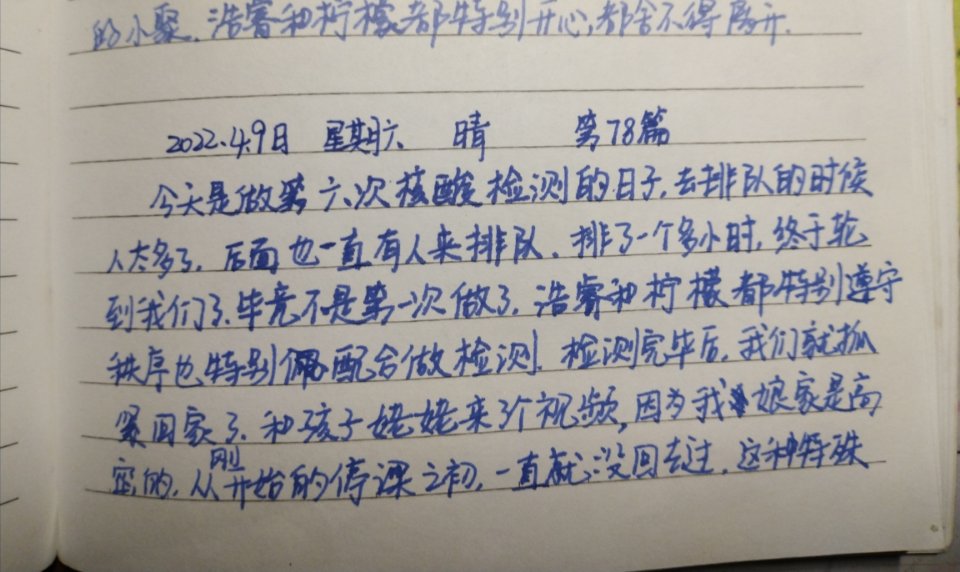 的小聚，浩睿和柠檬都特别开心，都舍不得离开.
2022.4.9日 星期六 晴 第78篇
今天是做第六次核酸检测的日子，去排队的时候
人太多了，后面也一直有人来排队，排了一个多小时，终于轮
到我们了，毕竟不是第一次做了，浩睿和柠檬都特别遵守
秩序也特别配合做检测，检测完毕后，我们就抓
紧回家了，和孩子姥姥来了个视频，因为我娘家是高
密的，从刚开始的停课之初，一直就没回去过，这种特殊